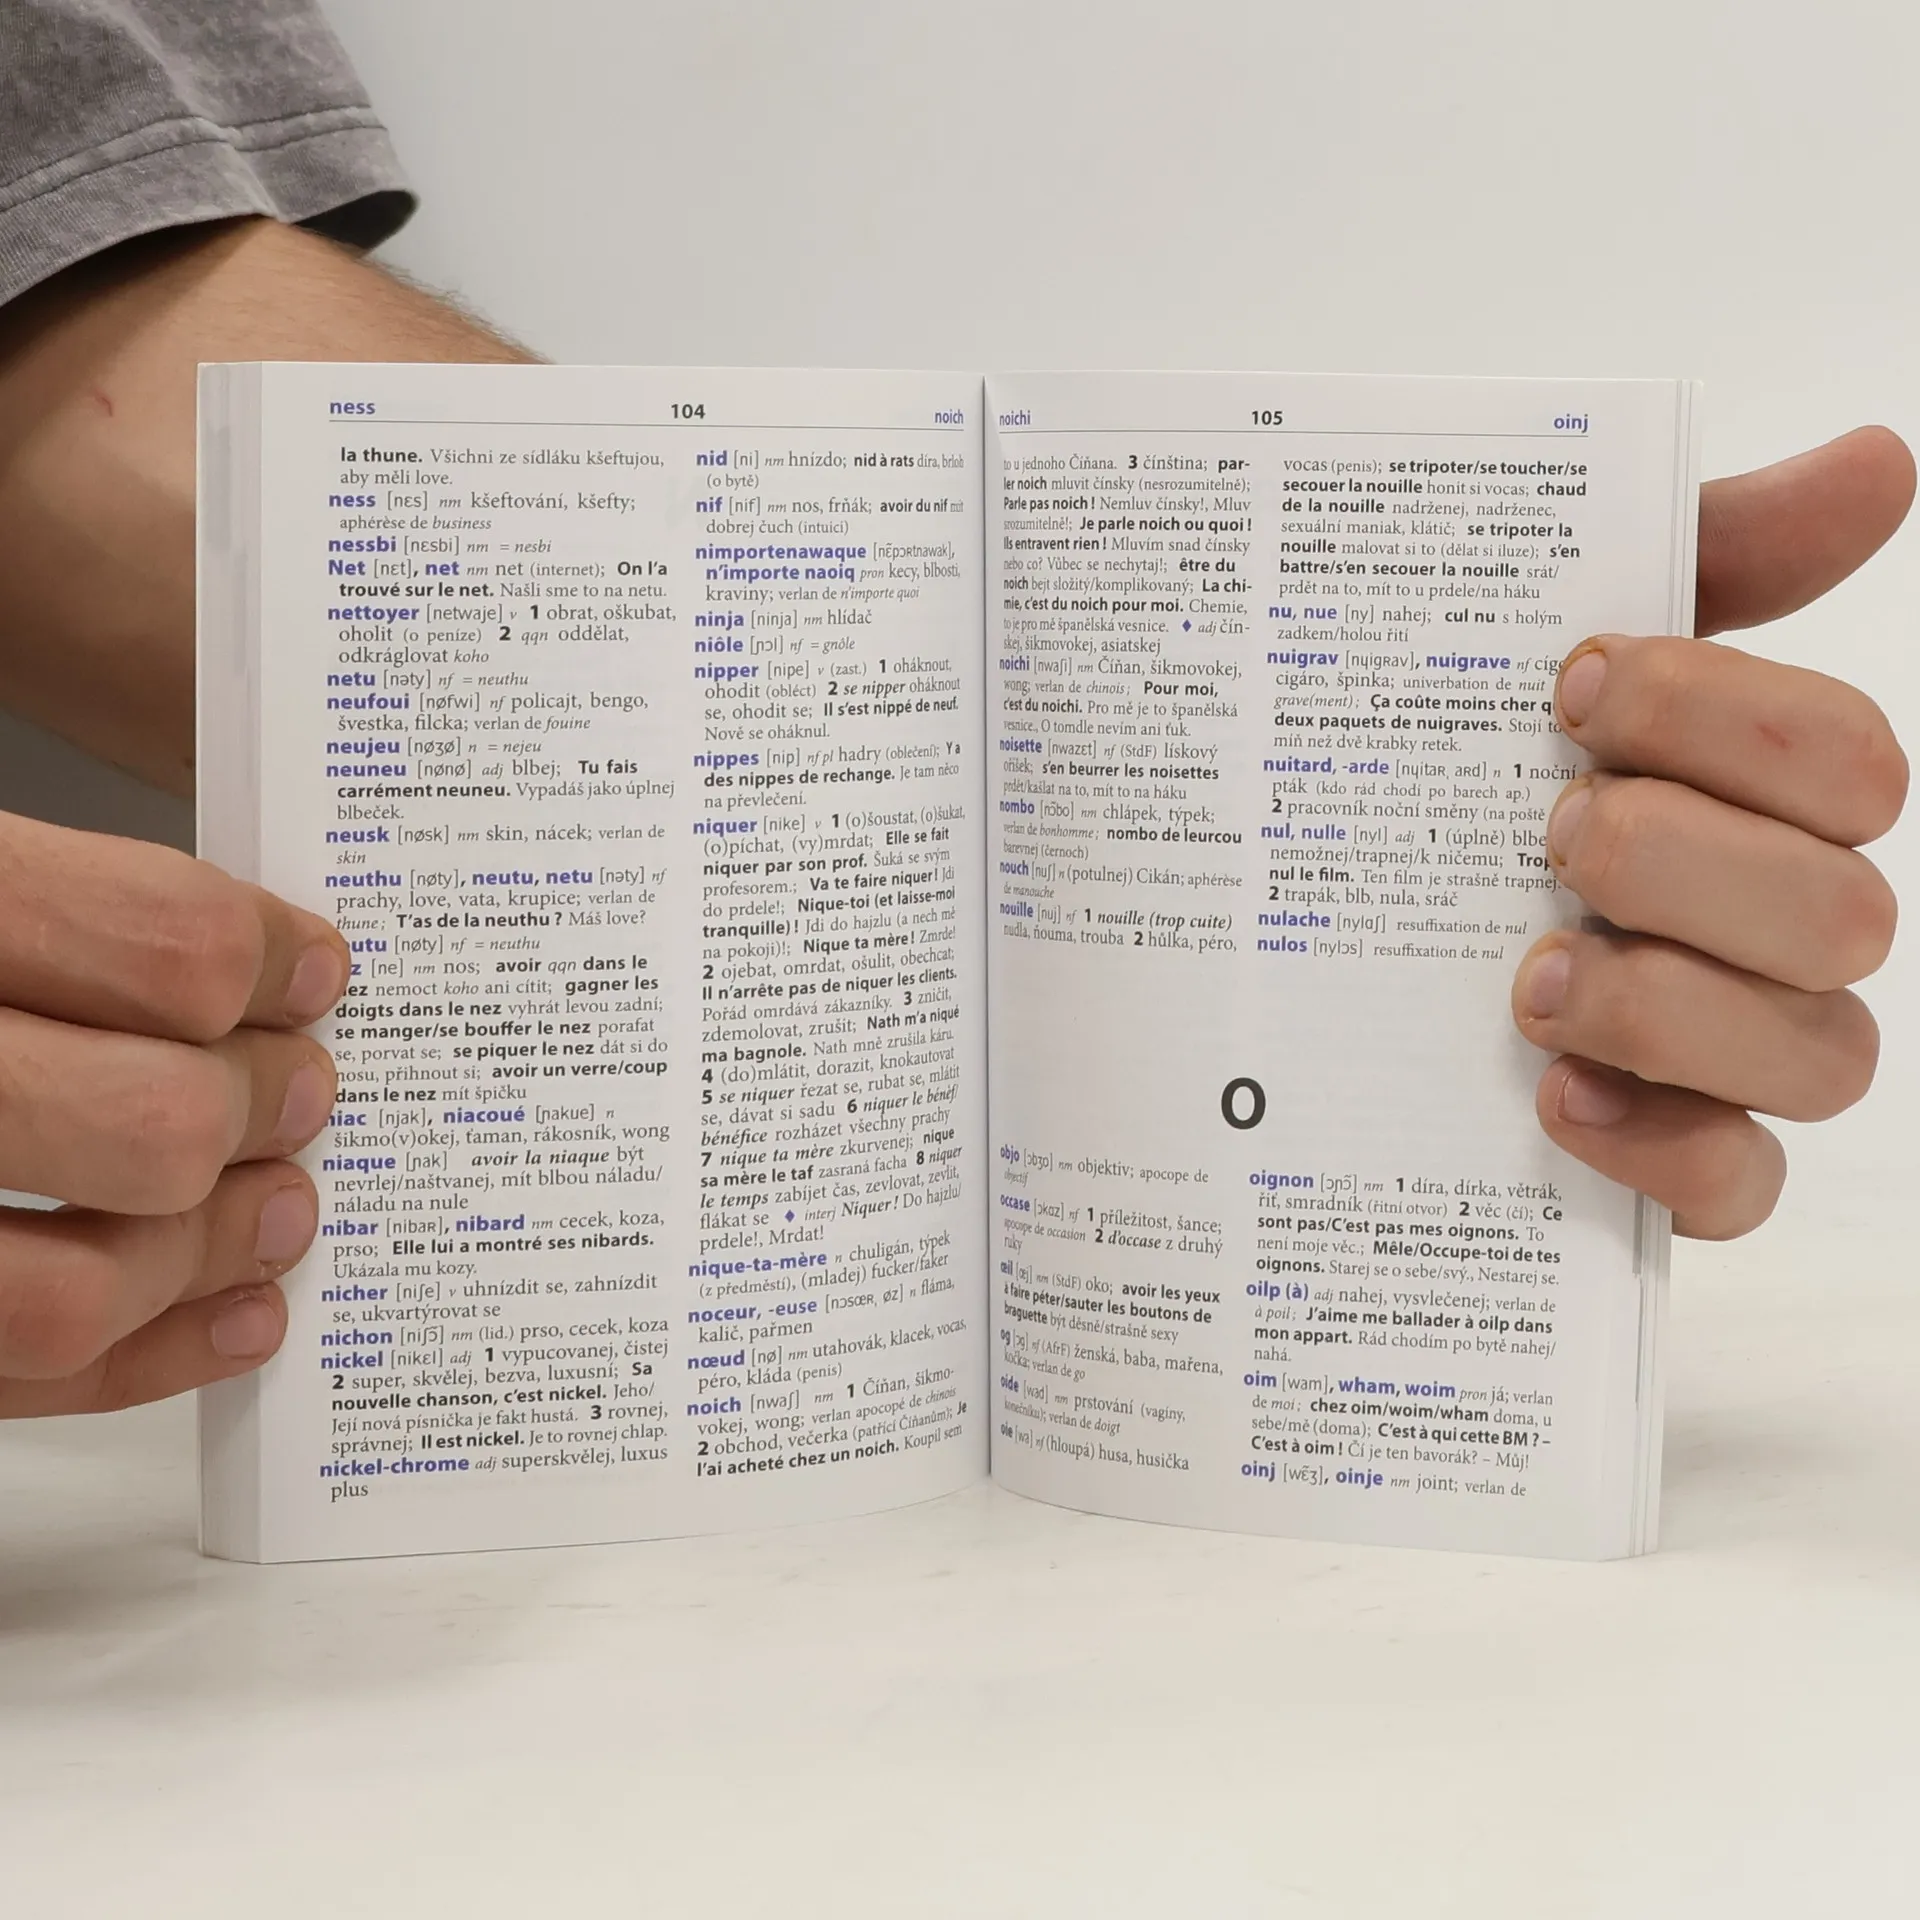 ness 104 noich
la thune. Všichni ze sídláku kšeftujou,
aby měli love.
ness [nɛs] nm kšeftování, kšefty;
aphérèse de business
nessbi [nɛsbi] nm = nesbi
Net [nɛt], net nm net (internet); On l'a
trouvé sur le net. Našli sme to na netu.
nettoyer [netwaje] v 1 obrat, oškubat,
oholit (o peníze) 2 qqn oddělat,
odkráglovat koho
netu [nəty] nf = neuthu
neufoui [nøfwi] nf policajt, bengo,
švestka, filcka; verlan de fouine
neujeu [nøʒø] n = nejeu
neuneu [nønø] adj blbej; Tu fais
carrément neuneu. Vypadáš jako úplnej
blbeček.
neusk [nøsk] nm skin, nácek; verlan de
skin
neuthu [nøty], neutu, netu [nəty] nf
prachy, love, vata, krupice; verlan de
thune; T'as de la neuthu ? Máš love?
utu [nøty] nf = neuthu
z [ne] nm nos; avoir qqn dans le
ez nemoct koho ani cítit; gagner les
doigts dans le nez vyhrát levou zadní;
se manger/se bouffer le nez porafat
se, porvat se; se piquer le nez dát si do
nosu, přihnout si; avoir un verre/coup
dans le nez mít špičku
niac [njak], niacoué [ɲakue] n
šikmo(v)okej, ťaman, rákosník, wong
niaque [ɲak] avoir la niaque být
nevrlej/naštvanej, mít blbou náladu/
náladu na nule
nibar [nibaʀ], nibard nm cecek, koza,
prso; Elle lui a montré ses nibards.
Ukázala mu kozy.
nicher [niʃe] v uhnízdit se, zahnízdit
se, ukvartýrovat se
nichon [niʃɔ̃] nm (lid.) prso, cecek, koza
nickel [nikɛl] adj 1 vypucovanej, čistej
2 super, skvělej, bezva, luxusní; Sa
nouvelle chanson, c'est nickel. Jeho/
Její nová písnička je fakt hustá. 3 rovnej,
správnej; Il est nickel. Je to rovnej chlap.
nickel-chrome adj superskvělej, luxus
plus
nid [ni] nm hnízdo; nid à rats díra, brloh
(o bytě)
nif [nif] nm nos, frňák; avoir du nif mít
dobrej čuch (intuici)
nimportenawaque [nɛ̃pɔʀtnawak],
n'importe naoiq pron kecy, blbosti,
kraviny; verlan de n'importe quoi
ninja [ninja] nm hlídač
niôle [ɲɔl] nf = gnôle
nipper [nipe] v (zast.) 1 oháknout,
ohodit (obléct) 2 se nipper oháknout
se, ohodit se; Il s'est nippé de neuf.
Nově se oháknul.
nippes [nip] nf pl hadry (oblečení); Y a
des nippes de rechange. Je tam něco
na převlečení.
niquer [nike] v 1 (o)šoustat, (o)šukat,
(o)píchat, (vy)mrdat; Elle se fait
niquer par son prof. Šuká se svým
profesorem.; Va te faire niquer! Jdi
do prdele!; Nique-toi (et laisse-moi
tranquille)! Jdi do hajzlu (a nech mě
na pokoji)!; Nique ta mère! Zmrde!
2 ojebat, omrdat, ošulit, obechcat;
Il n'arrête pas de niquer les clients.
Pořád omrdává zákazníky. 3 zničit,
zdemolovat, zrušit; Nath m'a niqué
ma bagnole. Nath mně zrušila káru.
4 (do)mlátit, dorazit, knokautovat
5 se niquer řezat se, rubat se, mlátit
se, dávat si sadu 6 niquer le bénéf/
bénéfice rozházet všechny prachy
7 nique ta mère zkurvenej; nique
sa mère le taf zasraná facha 8 niquer
le temps zabíjet čas, zevlovat, zevlit,
flákat se ♦ interj Niquer! Do hajzlu/
prdele!, Mrdat!
nique-ta-mère n chuligán, týpek
(z předměstí), (mladej) fucker/faker
noceur, -euse [nɔsœʀ, øz] n fláma,
kalič, pařmen
nœud [nø] nm utahovák, klacek, vocas,
péro, kláda (penis)
noich [nwaʃ] nm 1 Číňan, šikmo-
vokej, wong; verlan apocopé de chinois
2 obchod, večerka (patřící Číňanům); Je
l'ai acheté chez un noich. Koupil sem
noichi 105 oinj
to u jednoho Číňana. 3 čínština; par-
ler noich mluvit čínsky (nesrozumitelně);
Parle pas noich ! Nemluv čínsky!, Mluv
srozumitelně!; Je parle noich ou quoi !
Ils entravent rien ! Mluvím snad čínsky
nebo co? Vůbec se nechytaj!; être du
noich bejt složitý/komplikovaný; La chi-
mie, c'est du noich pour moi. Chemie,
to je pro mě španělská vesnice. ♦ adj čín-
skej, šikmovokej, asiatskej
noichi [nwaʃi] nm Číňan, šikmovokej,
wong; verlan de chinois; Pour moi,
c'est du noichi. Pro mě je to španělská
vesnice., O tomdle nevím ani ťuk.
noisette [nwazɛt] nf (StdF) lískový
oříšek; s'en beurrer les noisettes
prdět/kašlat na to, mít to na háku
nombo [nɔ̃bo] nm chlápek, týpek;
verlan de bonhomme; nombo de leurcou
barevnej (černoch)
nouch [nuʃ] n (potulnej) Cikán; aphérèse
de manouche
nouille [nuj] nf 1 nouille (trop cuite)
nudla, ňouma, trouba 2 hůlka, péro,
vocas (penis); se tripoter/se toucher/se
secouer la nouille honit si vocas; chaud
de la nouille nadrženej, nadrženec,
sexuální maniak, klátič; se tripoter la
nouille malovat si to (dělat si iluze); s'en
battre/s'en secouer la nouille srát/
prdět na to, mít to u prdele/na háku
nu, nue [ny] nahej; cul nu s holým
zadkem/holou řití
nuigrav [nɥigʀav], nuigrave nf cíg
cigáro, špinka; univerbation de nuit
grave(ment); Ça coûte moins cher q
deux paquets de nuigraves. Stojí to
míň než dvě krabky retek.
nuitard, -arde [nɥitaʀ, aʀd] n 1 noční
pták (kdo rád chodí po barech ap.)
2 pracovník noční směny (na poště
nul, nulle [nyl] adj 1 (úplně) blbe
nemožnej/trapnej/k ničemu; Trop
nul le film. Ten film je strašně trapnej.
2 trapák, blb, nula, sráč
nulache [nylaʃ] resuffixation de nul
nulos [nylɔs] resuffixation de nul
O
objo [ɔbʒo] nm objektiv; apocope de
objectif
occase [ɔkaz] nf 1 příležitost, šance;
apocope de occasion 2 d'occase z druhý
ruky
œil [œj] nm (StdF) oko; avoir les yeux
à faire péter/sauter les boutons de
braguette být děsně/strašně sexy
og [ɔg] nf (AfrF) ženská, baba, mařena,
kočka; verlan de go
oide [wad] nm prstování (vagíny,
konečníku); verlan de doigt
oie [wa] nf (hloupá) husa, husička
oignon [ɔɲɔ̃] nm 1 díra, dírka, větrák,
řiť, smradník (řitní otvor) 2 věc (čí); Ce
sont pas/C'est pas mes oignons. To
není moje věc.; Mêle/Occupe-toi de tes
oignons. Starej se o sebe/svý., Nestarej se.
oilp (à) adj nahej, vysvlečenej; verlan de
à poil; J'aime me ballader à oilp dans
mon appart. Rád chodím po bytě nahej/
nahá.
oim [wam], wham, woim pron já; verlan
de moi; chez oim/woim/wham doma, u
sebe/mě (doma); C'est à qui cette BM ? –
C'est à oim ! Čí je ten bavorák? – Můj!
oinj [wɛ̃ʒ], oinje nm joint; verlan de